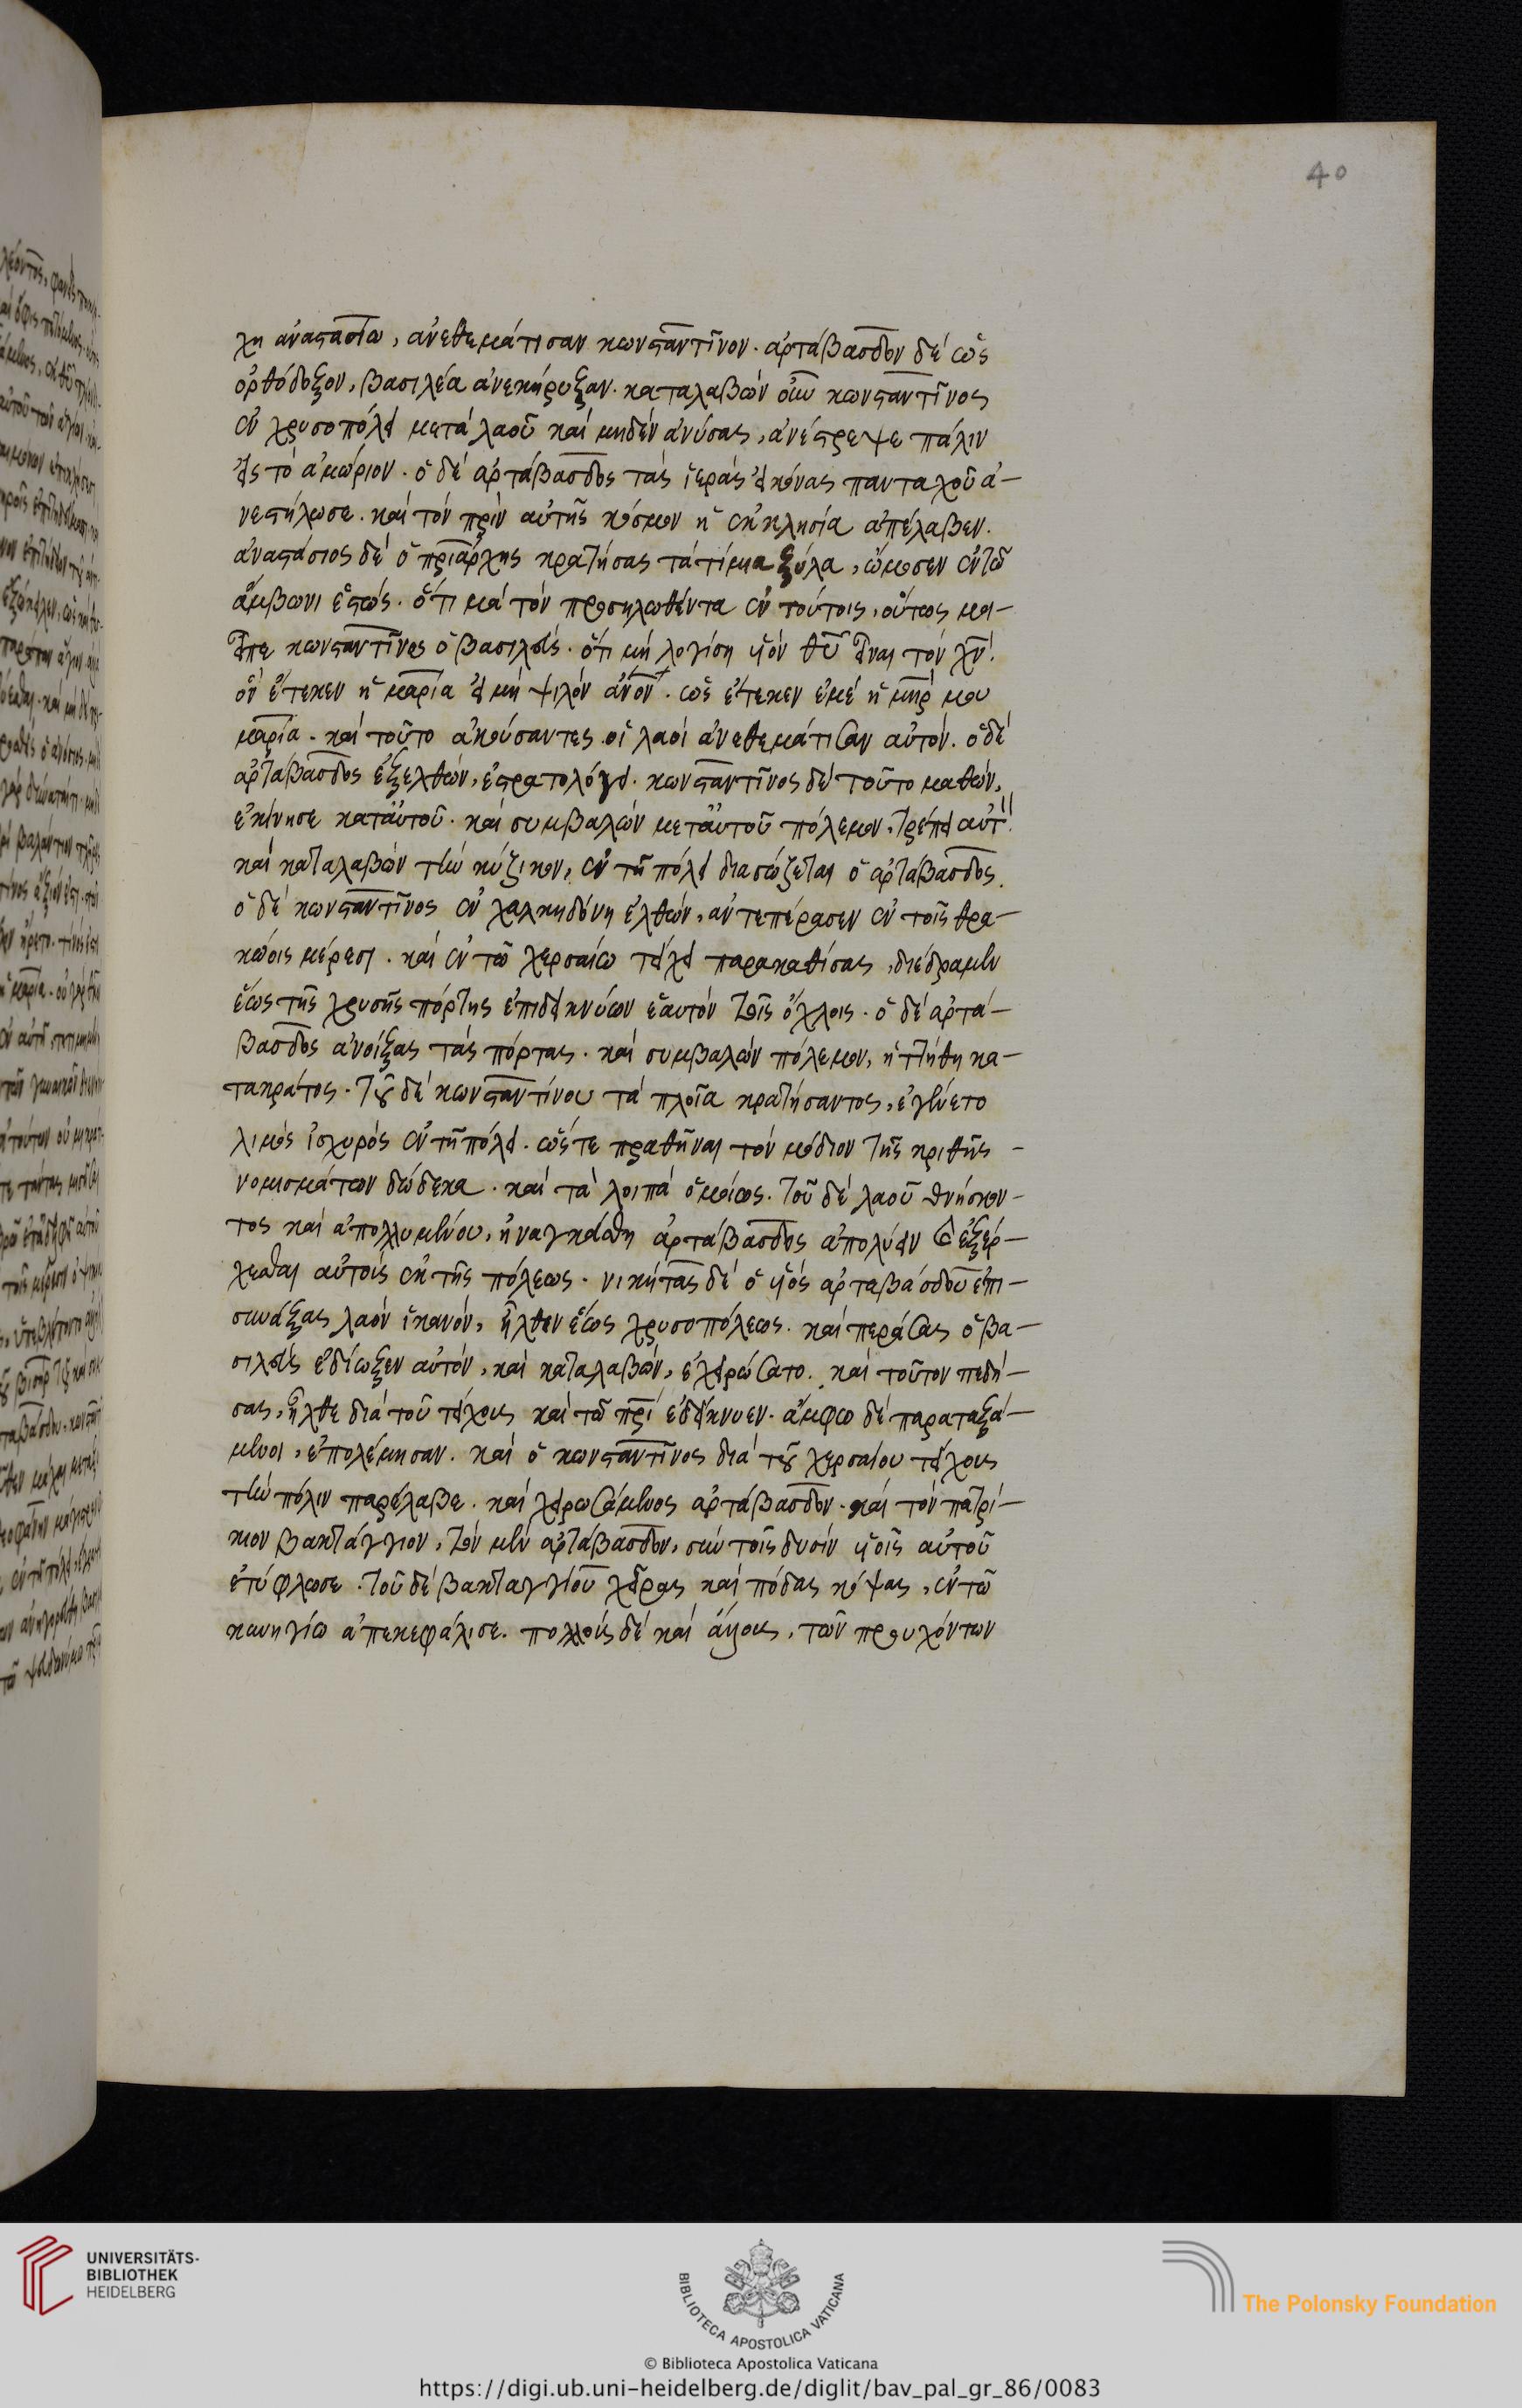 40
χη ἀναστασίω, ἀνεθεμάτισαν κωνσταντῖνον. ἀρτάβασδον δὲ ὡς
ὀρθόδοξον, βασιλέα ἀνεκήρυξαν. καταλαβὼν οὖν κωνσταντῖνος
ἐν χρυσοπόλει μετὰ λαοῦ καὶ μηδὲν ἀνύσας, ἀνέστρεψε πάλιν
εἰς τὸ ἀμώριον. ὁ δὲ ἀρτάβασδος τὰς ἱερὰς εἰκόνας πανταχοῦ ἀ-
νεστήλωσε. καὶ τὸν πρὶν αὐτῆς κόσμον ἡ ἐκκλησία ἀπέλαβεν.
ἀναστάσιος δὲ ὁ πριάρχης κρατήσας τὰ τίμια ξύλα, ὤμοσεν ἐν τῶ
ἄμβωνι ἑστώς. ὅτι μὰ τὸν προσηλωθέντα ἐν τούτοις, οὕτως μοι
εἶπε κωνσταντῖνος ὁ βασιλεύς. ὅτι μὴ λογίση υἱὸν θυ εἶναι τὸν χν.
ὃν ἔτεκεν ἡ μαρία εἰ μὴ ψιλὸν ἀνον. ὡς ἔτεκεν ἐμὲ ἡ μηρ μου
μαρία. καὶ τοῦτο ἀκούσαντες οἱ λαοὶ ἀνεθεμάτισαν αὐτόν. ὁ δὲ
ἀρτάβασδος ἐξελθών, ἐστρατολόγει. κωνσταντῖνος δὲ τοῦτο μαθών,
ἐκίνησε κατ' αὐτοῦ. καὶ συμβαλὼν μετ' αὐτοῦ πόλεμον, τρέπει αὐτ.
καὶ καταλαβὼν τὴν κύζικον, ἐν τῆ πόλει διασώζεται ὁ ἀρτάβασδος.
ὁ δὲ κωνσταντῖνος ἐν χαλκηδόνη ἐλθών, ἀντεπέρασεν ἐν τοῖς θρα-
κώοις μέρεσι. καὶ ἐν τῶ χερσαίω τείχει παρακαθίσας, διέδραμεν
ἕως τῆς χρυσῆς πόρτης ἐπιδεικνύων ἑαυτὸν τοῖς ὄχλοις. ὁ δὲ ἀρτά-
βασδος ἀνοίξας τὰς πόρτας. καὶ συμβαλὼν πόλεμον, ἡττήθη κα-
τακράτος. τοῦ δὲ κωνσταντίνου τὰ πλοῖα κρατήσαντος, ἐγένετο
λιμὸς ἰσχυρὸς ἐν τῆ πόλει. ὥστε πραθῆναι τὸν μόδιον τῆς κριθῆς
νομισμάτων δώδεκα. καὶ τὰ λοιπὰ ὁμοίως. τοῦ δὲ λαοῦ θνήσκον-
τος καὶ ἀπολλυμένου, ἠναγκάσθη ἀρτάβασδος ἀπολύειν ἐξέρ-
χεσθαι αὐτοὶς ἐκ τῆς πόλεως. νικήτας δὲ ὁ υἱὸς ἀρταβάσδου ἐπι-
συνάξας λαὸν ἱκανόν, ἦλθεν ἕως χρυσοπόλεως. καὶ περάσας ὁ βα-
σιλεὺς ἐδίωξεν αὐτόν, καὶ καταλαβών, ἐχειρώσατο. καὶ τοῦτον πεδή-
σας, ἦλθε διὰ τοῦ τείχους καὶ τῶ πρι ἐδείκνυεν. ἄμφω δὲ παραταξά-
μενοι, ἐπολέμησαν. καὶ ὁ κωνσταντῖνος διὰ τοῦ χερσαίου τείχους
τὴν πόλιν παρέλαβε. καὶ χειρωσάμενος ἀρτάβασδον. καὶ τὸν πατρί-
κιον βακτάγγιον, τὸν μὲν ἀρτάβασδον, σὺν τοῖς δυσὶν υἱοῖς αὐτοῦ
ἐτύφλωσε. τοῦ δὲ βακταγγίου χεῖρας καὶ πόδας κόψας, ἐν τῶ
κυνηγίω ἀπεκεφάλισε. πολλοὺς δὲ καὶ ἄλλους, τῶν προυχόντων
UNIVERSITÄTS-
BIBLIOTHEK
HEIDELBERG
BIBLIOTECA APOSTOLICA VATICANA
The Polonsky Foundation
© Biblioteca Apostolica Vaticana
https://digi.ub.uni-heidelberg.de/diglit/bav_pal_gr_86/0083